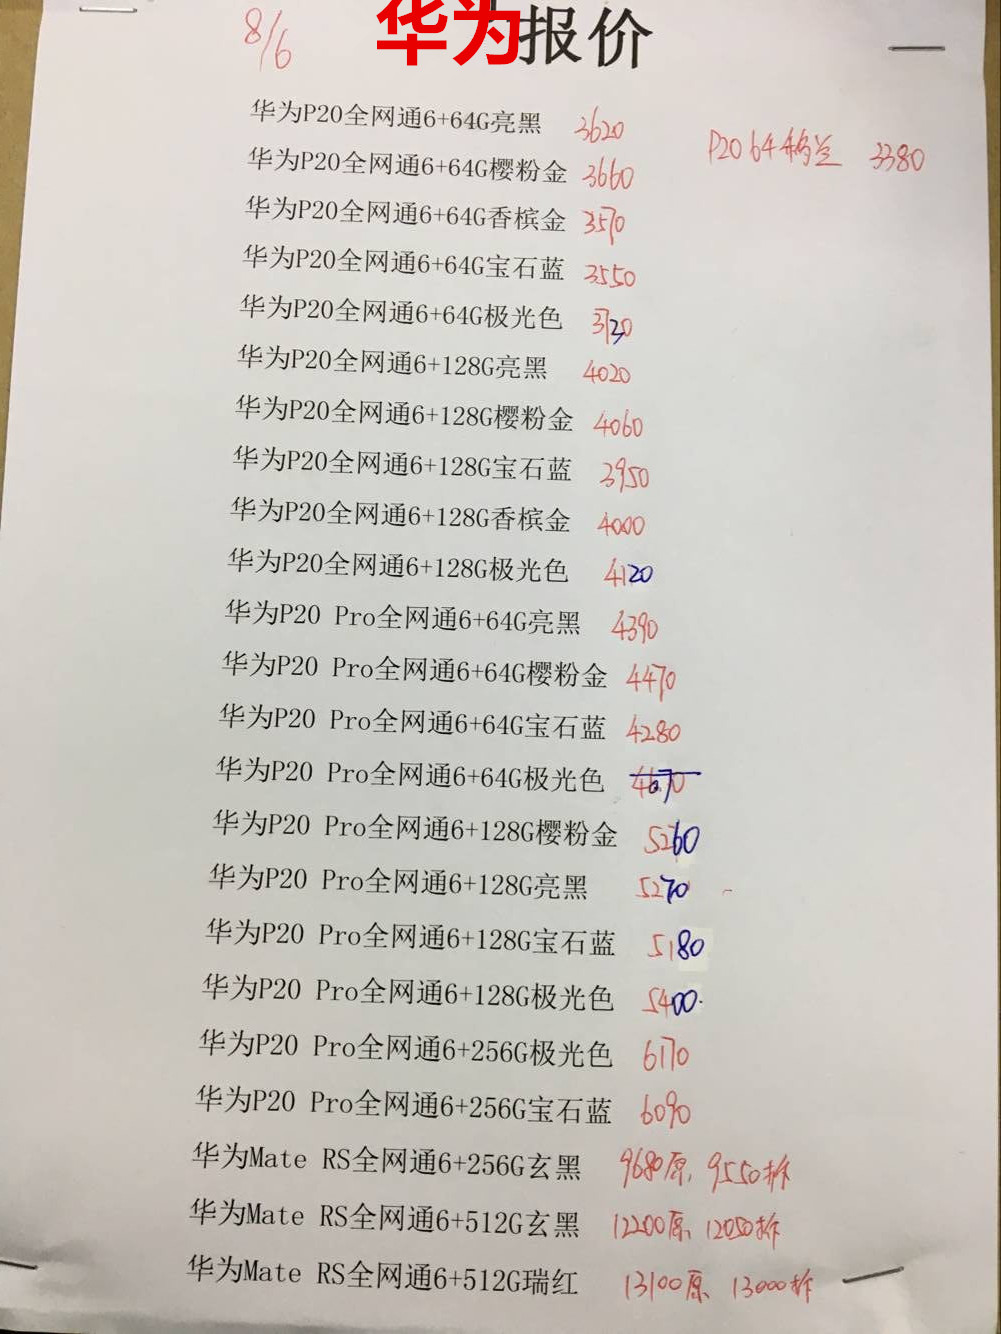 8/6 华为报价
华为P20全网通6+64G亮黑 3620
P20 64 移兰 3380
华为P20全网通6+64G樱粉金 3660
华为P20全网通6+64G香槟金 3570
华为P20全网通6+64G宝石蓝 3550
华为P20全网通6+64G极光色 3720
华为P20全网通6+128G亮黑 4020
华为P20全网通6+128G樱粉金 4060
华为P20全网通6+128G宝石蓝 3950
华为P20全网通6+128G香槟金 4000
华为P20全网通6+128G极光色 4120
华为P20 Pro全网通6+64G亮黑 4390
华为P20 Pro全网通6+64G樱粉金 4470
华为P20 Pro全网通6+64G宝石蓝 4280
华为P20 Pro全网通6+64G极光色 4670
华为P20 Pro全网通6+128G樱粉金 5260
华为P20 Pro全网通6+128G亮黑 5270
华为P20 Pro全网通6+128G宝石蓝 5180
华为P20 Pro全网通6+128G极光色 5400
华为P20 Pro全网通6+256G极光色 6170
华为P20 Pro全网通6+256G宝石蓝 6090
华为Mate RS全网通6+256G玄黑 9680原, 9550拆
华为Mate RS全网通6+512G玄黑 12200原 12050拆
华为Mate RS全网通6+512G瑞红 13100原 13000拆